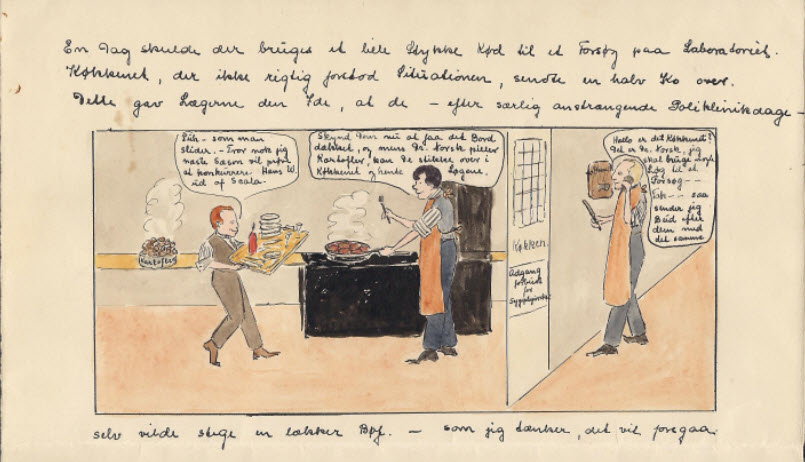 En Dag skulde der bruges et hele Stykke Kød til et Forsøg paa Laboratoriet.
Køkkenet, der ikke rigtig forstod Situationen, sendte en halv Ko over.
Dette gav Lægerne den Ide, at de – efter særlig anstrængende Poliklinikdage –
Puh – som man
slider. – Tror nok jeg
næste Sæson vil prøve
at konkurrere Hans til
ud af Scala.
Skynd Dem nu at faa det Bord
dækket, og mens Dr. Norsk piller
Kartofler, kan De stikke over i
Køkkenet og hente Løgene.
Hallo er det Køkkenet?
Det er Dr. Norsk, jeg
skal bruge nogle
Løg til et
Forsøg –
Tak – saa
sender jeg
Bud efter
dem med
det samme
Kartofler
Køkken
Adgang
forbudt
for
selv vilde stege en lækker Bøf. – som jeg tænker, det vil foregaa.